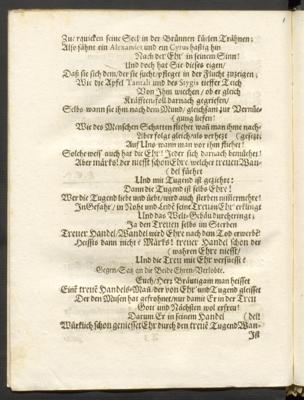 Zu/ raucken seine Seel in der Brünnen kielen Trähnen;
Also sähnt ein Alexander und ein Cyrus hafftig hin
Nach der Ehr/ in seinem Sinn!
Und doch hat Sie dieses eigen/
Daß sie sich dem/ der sie sucht/ pfleget in der Flucht zuzeigen;
Wie die Äpfel Tantali und des Stygis tieffer Teich
Von Ihm weichen/ ob er gleich
Kräfften soll darnach gegriefen/
Selbs wann sie ihm nach dem Mund/ gleichsam zur Vernü-
(gung liefen!
Wie des Menschen Schatten fliehet wañ man ihme nach-
Aber folget gleich/ als verhezt (gesezt;
Auf Uns wann man vor ihm fliehet!
Solche weis' auch hat die Ehr! Jeder sich darnach bemühet!
Aber märks! der nießt schon Ehre welcher treuen Wan-
(del führet
Und mit Tugend ist geziehrt:
Dann die Tugend ist selbs Ehre!
Wer die Tugend liebt und übt/ wird auch sterben nüssermehre!
In Gefahr/ in Noht und Leid/ seine Treu ein Ehr erlingt
Und das Welt-Gebäu durchdringt;
Ja den Treuen selbs im Sterben
Treuer Handel/ Wandel wird Ehre nach dem Tod erwerbẽ!
Heissts dann nicht ? Märks! treuer Handel schon der
(wahren Ehre nießt/
Und die Treu mit Ehr versüesst?
Gegen-Satz an die Beide Ehren-Verlobte.
Euch/ Herr Bräutigam man heisset
Eine treuẽ Handels-Mañ/ der von Ehr und Tugend gleisset
Der den Müsen hat gefrohnet/ nur damit Er in der Treu
Gott und Nächsten wol erfreu!
Darum Er in seinem Handel (delt
Würklich schon geniesset Ehr durch den treuẽ Tugend Wan-
Ist